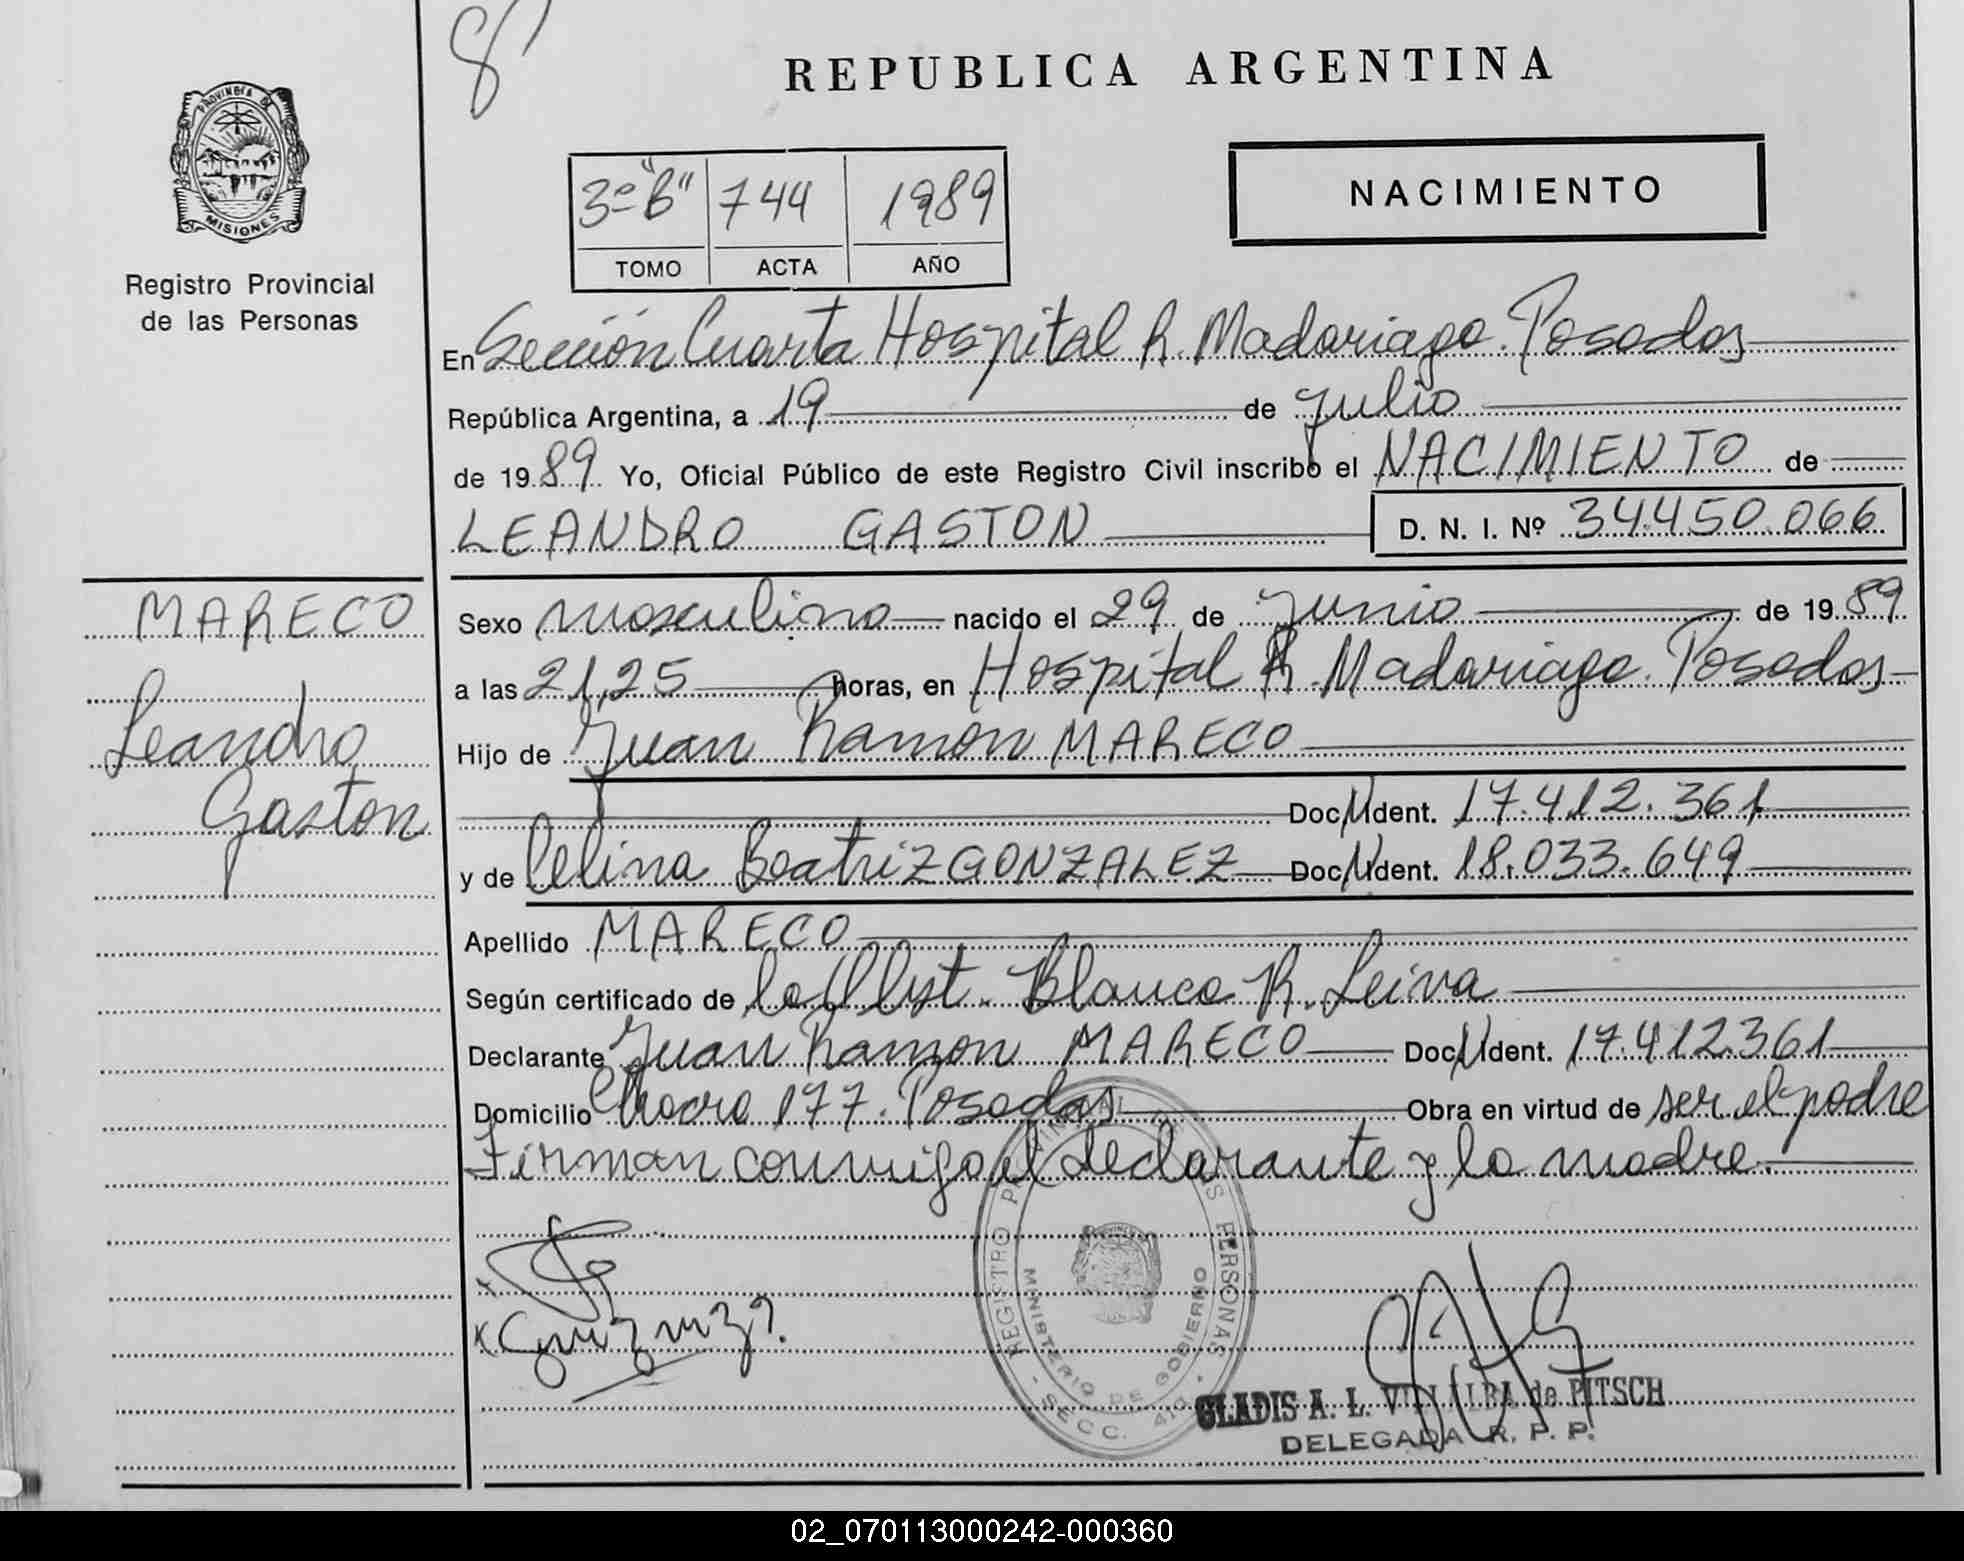 8
REPUBLICA ARGENTINA
PROVINCIA DE
MISIONES
Registro Provincial
de las Personas
3º "B" 744 1989
TOMO ACTA AÑO
NACIMIENTO
En Sección Cuarta Hospital R. Madariaga. Posadas
República Argentina, a 19 de Julio
de 1989 Yo, Oficial Público de este Registro Civil inscribo el NACIMIENTO de
LEANDRO GASTON D. N. I. Nº 34.450.066
MARECO
Leandro
Gaston
Sexo masculino nacido el 29 de Junio de 1989
a las 21,25 horas, en Hospital R. Madariaga. Posadas
Hijo de Juan Ramon MARECO
Doc. N. Ident. 17.412.361
y de Celina Beatriz GONZALEZ Doc. N. Ident. 18.033.649
Apellido MARECO
Según certificado de la Obst. Blanca R. Leiva
Declarante Juan Ramon MARECO Doc. N. Ident. 17.412.361
Domicilio Chacra 177. Posadas Obra en virtud de ser el padre
Firman conmigo el declarante y la madre.
REGISTRO PROVINCIAL DE LAS PERSONAS
MINISTERIO DE GOBIERNO
SECC. 4ta
GLADIS A. L. VILLALBA de PITSCH
DELEGADA R. P. P.
02_070113000242-000360